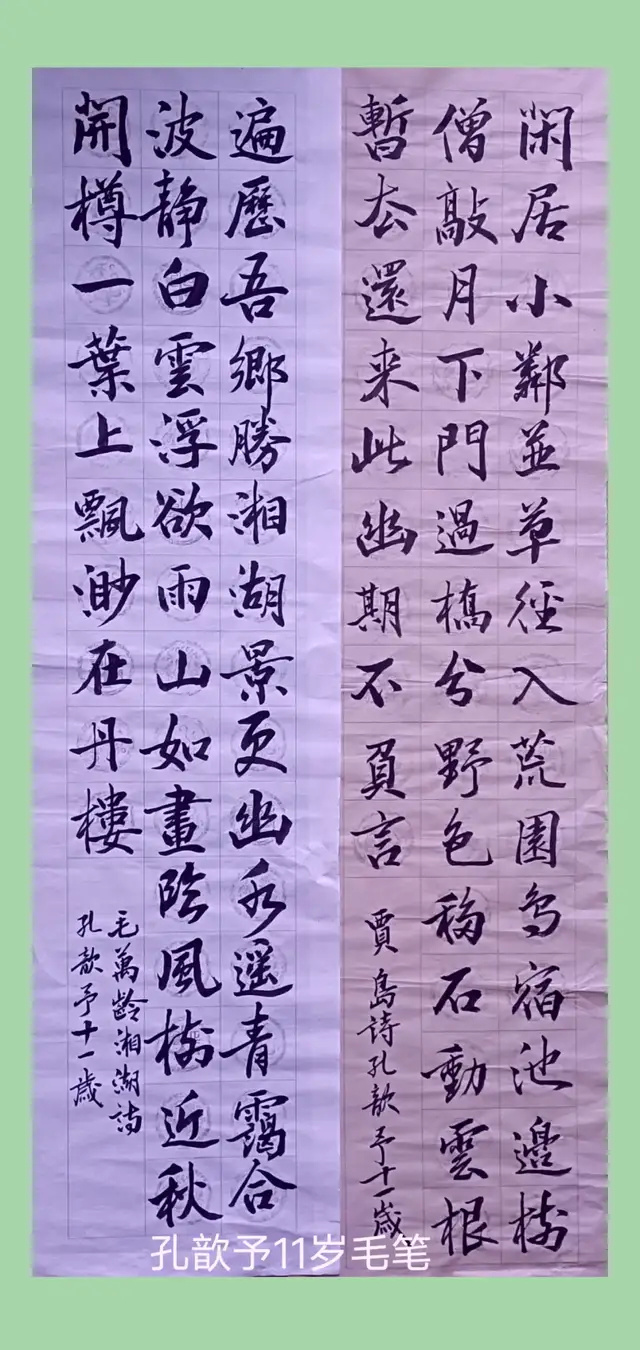 閑居小鄰並草徑入荒園鳥宿池邊樹
僧敲月下門過橋分野色移石動雲根
暫去還来此幽期不負言
賈島詩孔歆予十一歲
遍歷吾鄉勝湘湖景更幽水遥青靄合
波靜白雲浮欲雨山如畫陰風樹近秋
開樽一葉上飄渺在丹樓
毛萬齡湘湖詩
孔歆予十一歲
孔歆予11岁毛笔